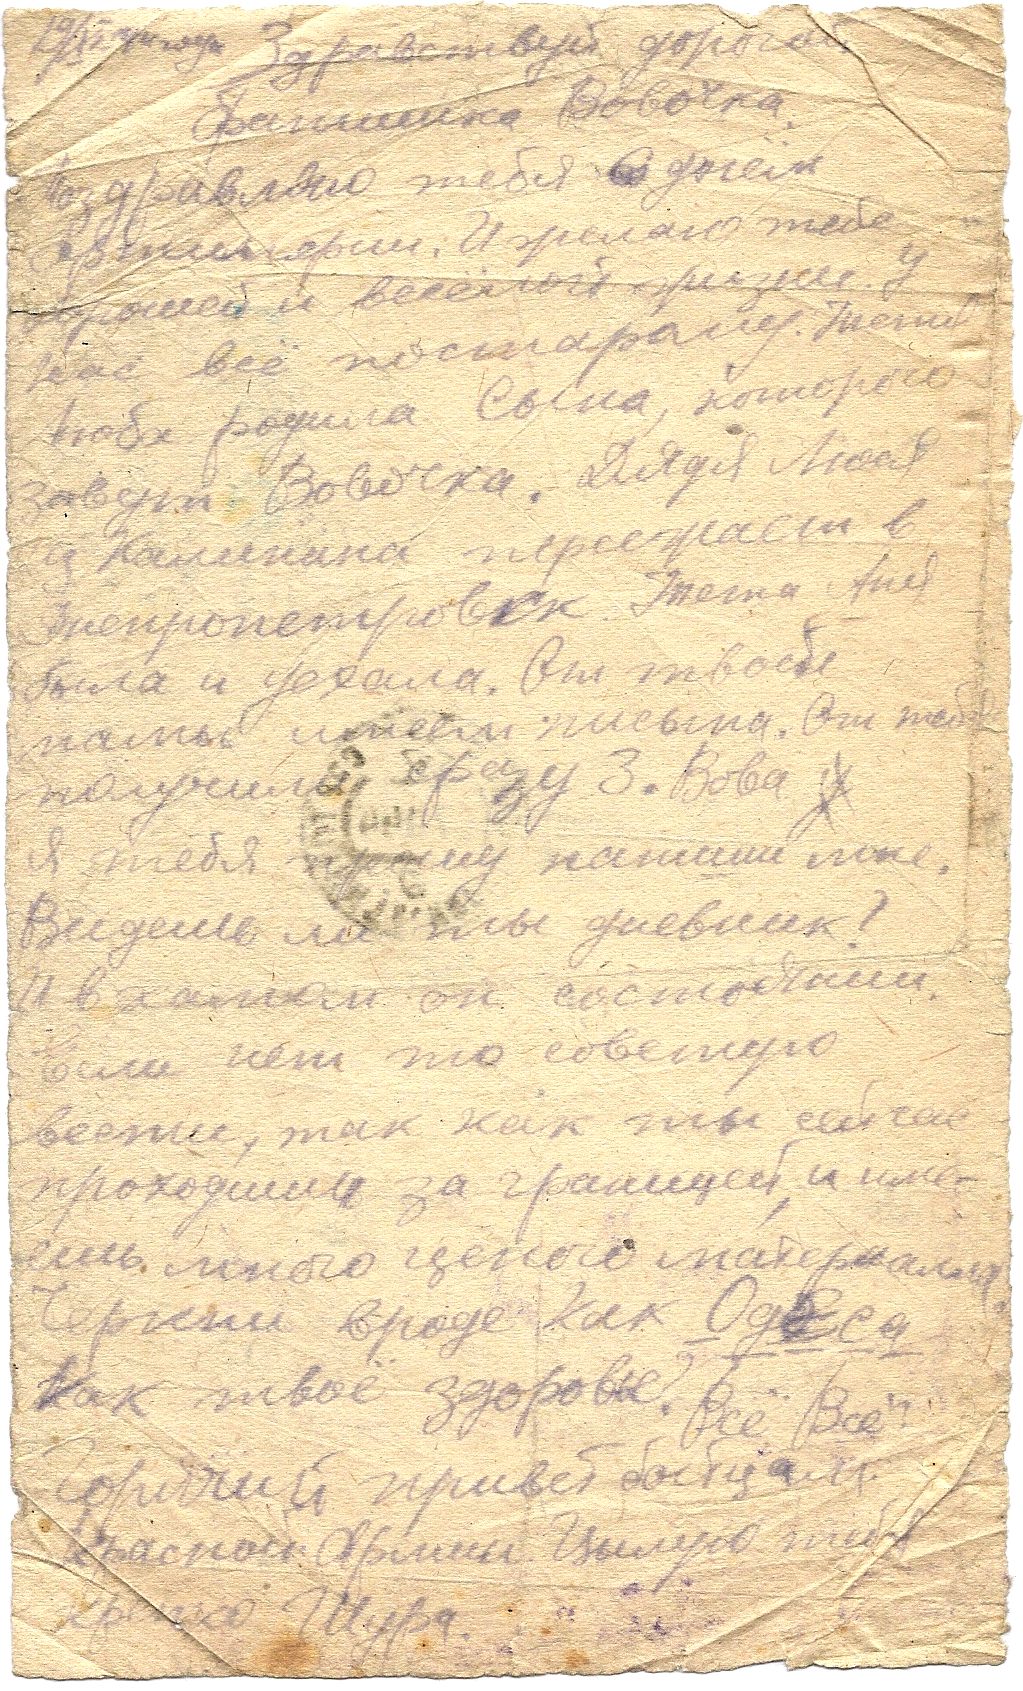 19/XI Здравствуй дорогой
Братишка Вовочка.
Поздравляю тебя с днём
Артилерии. И желаю тебе
хорошей и весёлой жизни. У
нас всё постарому. Тётя
Люба родила Сына, которого
зовут Вовочка. Дядя Люся
из Калинина переезжает в
Днепропетровск. Тетя Аня
была и уехала. От твоей
мамы имеем письма. От тебя
получили сразу 3. Вова
я тебя прошу напиши мне.
Ведешь ли ты дневник?
И в каком он состоянии.
Если нет то советую
вести, так как ты сейчас
проходишь за границей, и име-
ешь много ценого материала
вроде как Одеса
Как твоё здоровье?
Всё Всё!
Горячий привет бойцам
Красной Армии. Цылую тебя
крепко Шура.